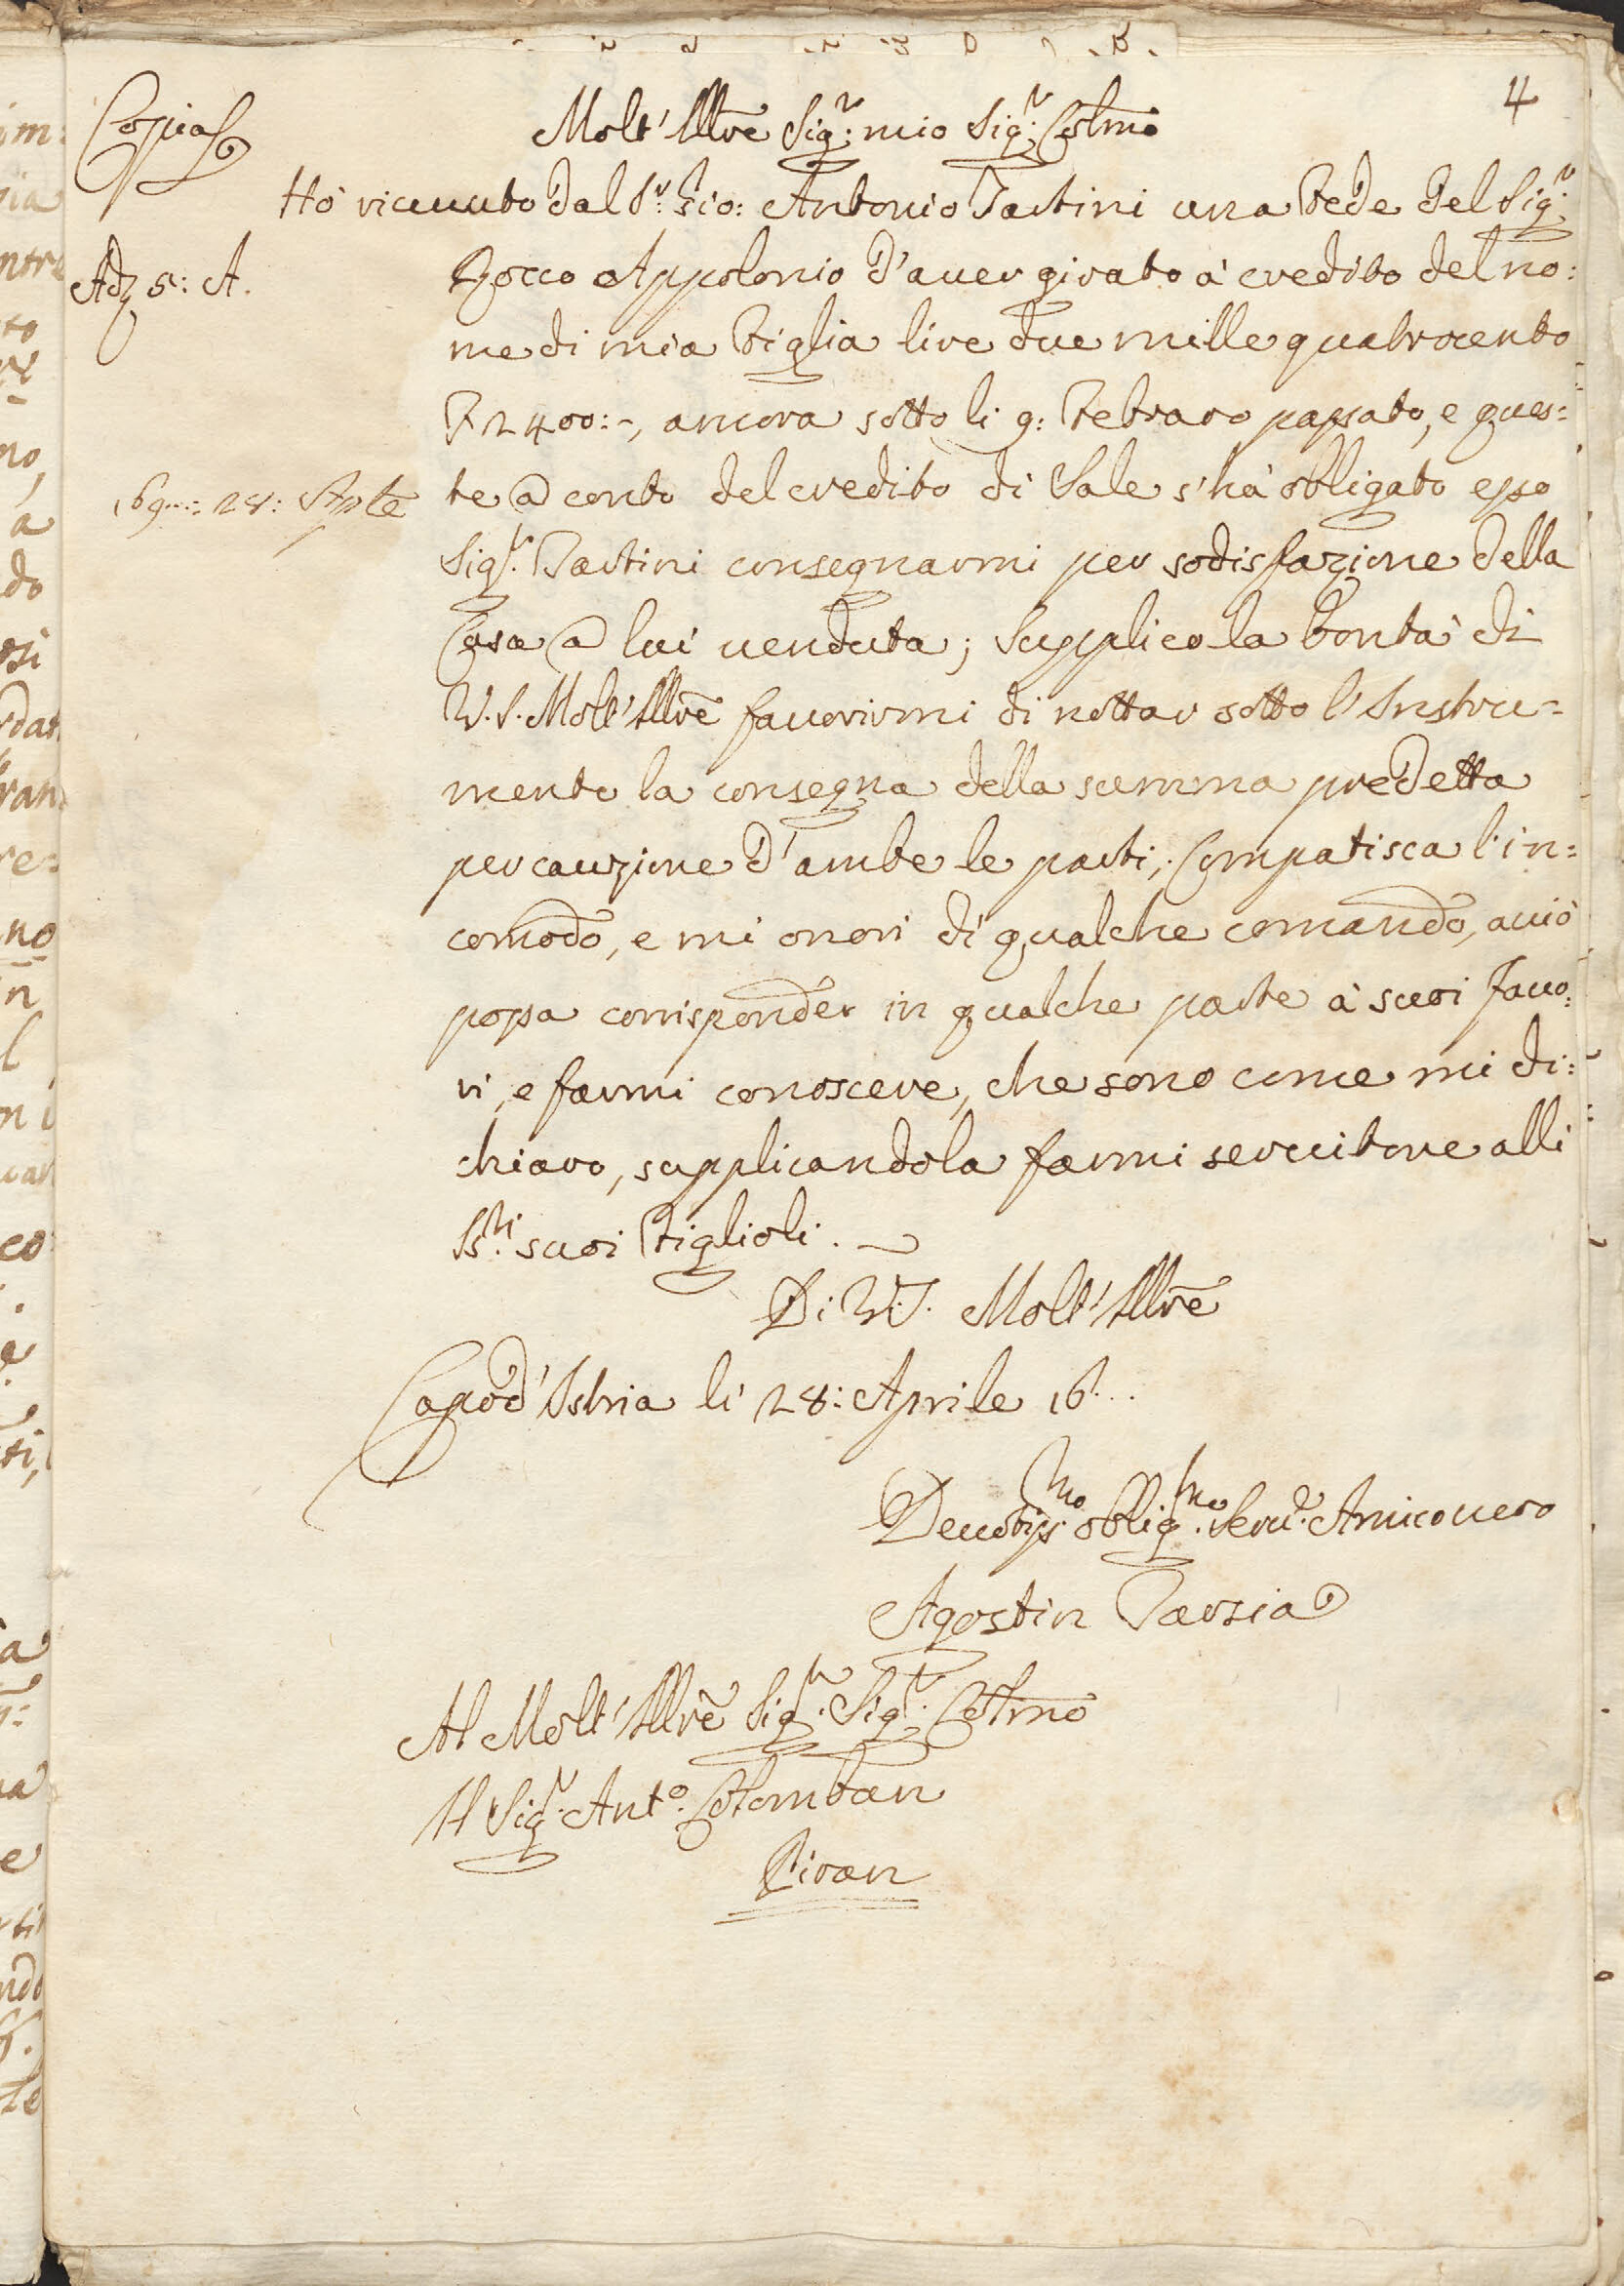 4
Copia
Molt' Illre Sigr: mio Sigr: Colmo
Hò riceuuto dal Sr: Gio: Antonio Tartini una Fede del Sigr:
Rocco Appolonio d'auer girato à credito del no:
Adj 5: A.
me di mia Figlia lire due mille quatrocento
2400:-, ancora sotto li 9: Febraro passato, e ques=
169...: 28: Aple
te a conto del credito di Sale s'hà obligato esso
Sigr. Tartini consegnarmi per sodisfazione della
Casa a lui uenduta; Supplico la bontà di
V.S. Molt' Illre fauorirmi di nottar sotto l'Instru=
mento la consegna della summa predetta
per cauzione d'ambe le parti; Compatisca l'in=
comodo, e mi onori di qualche comando, acciò
possa corrisponder in qualche parte à suoi fauo:
ri, e farmi conoscere, che sono come mi di:
chiaro, supplicandola farmi seruitore alli
SSri: suoi Figlioli.
Di V.S. Molt' Illre
Capod' Istria li 28: Aprile 16...
Deuotiss:mo oblig:mo Seru:e Amico uero
Agostin Tarsia
Al Molt' Illre Sigr. Sigr. Colmo
Il Sigr. Anto. Colomban
Piran